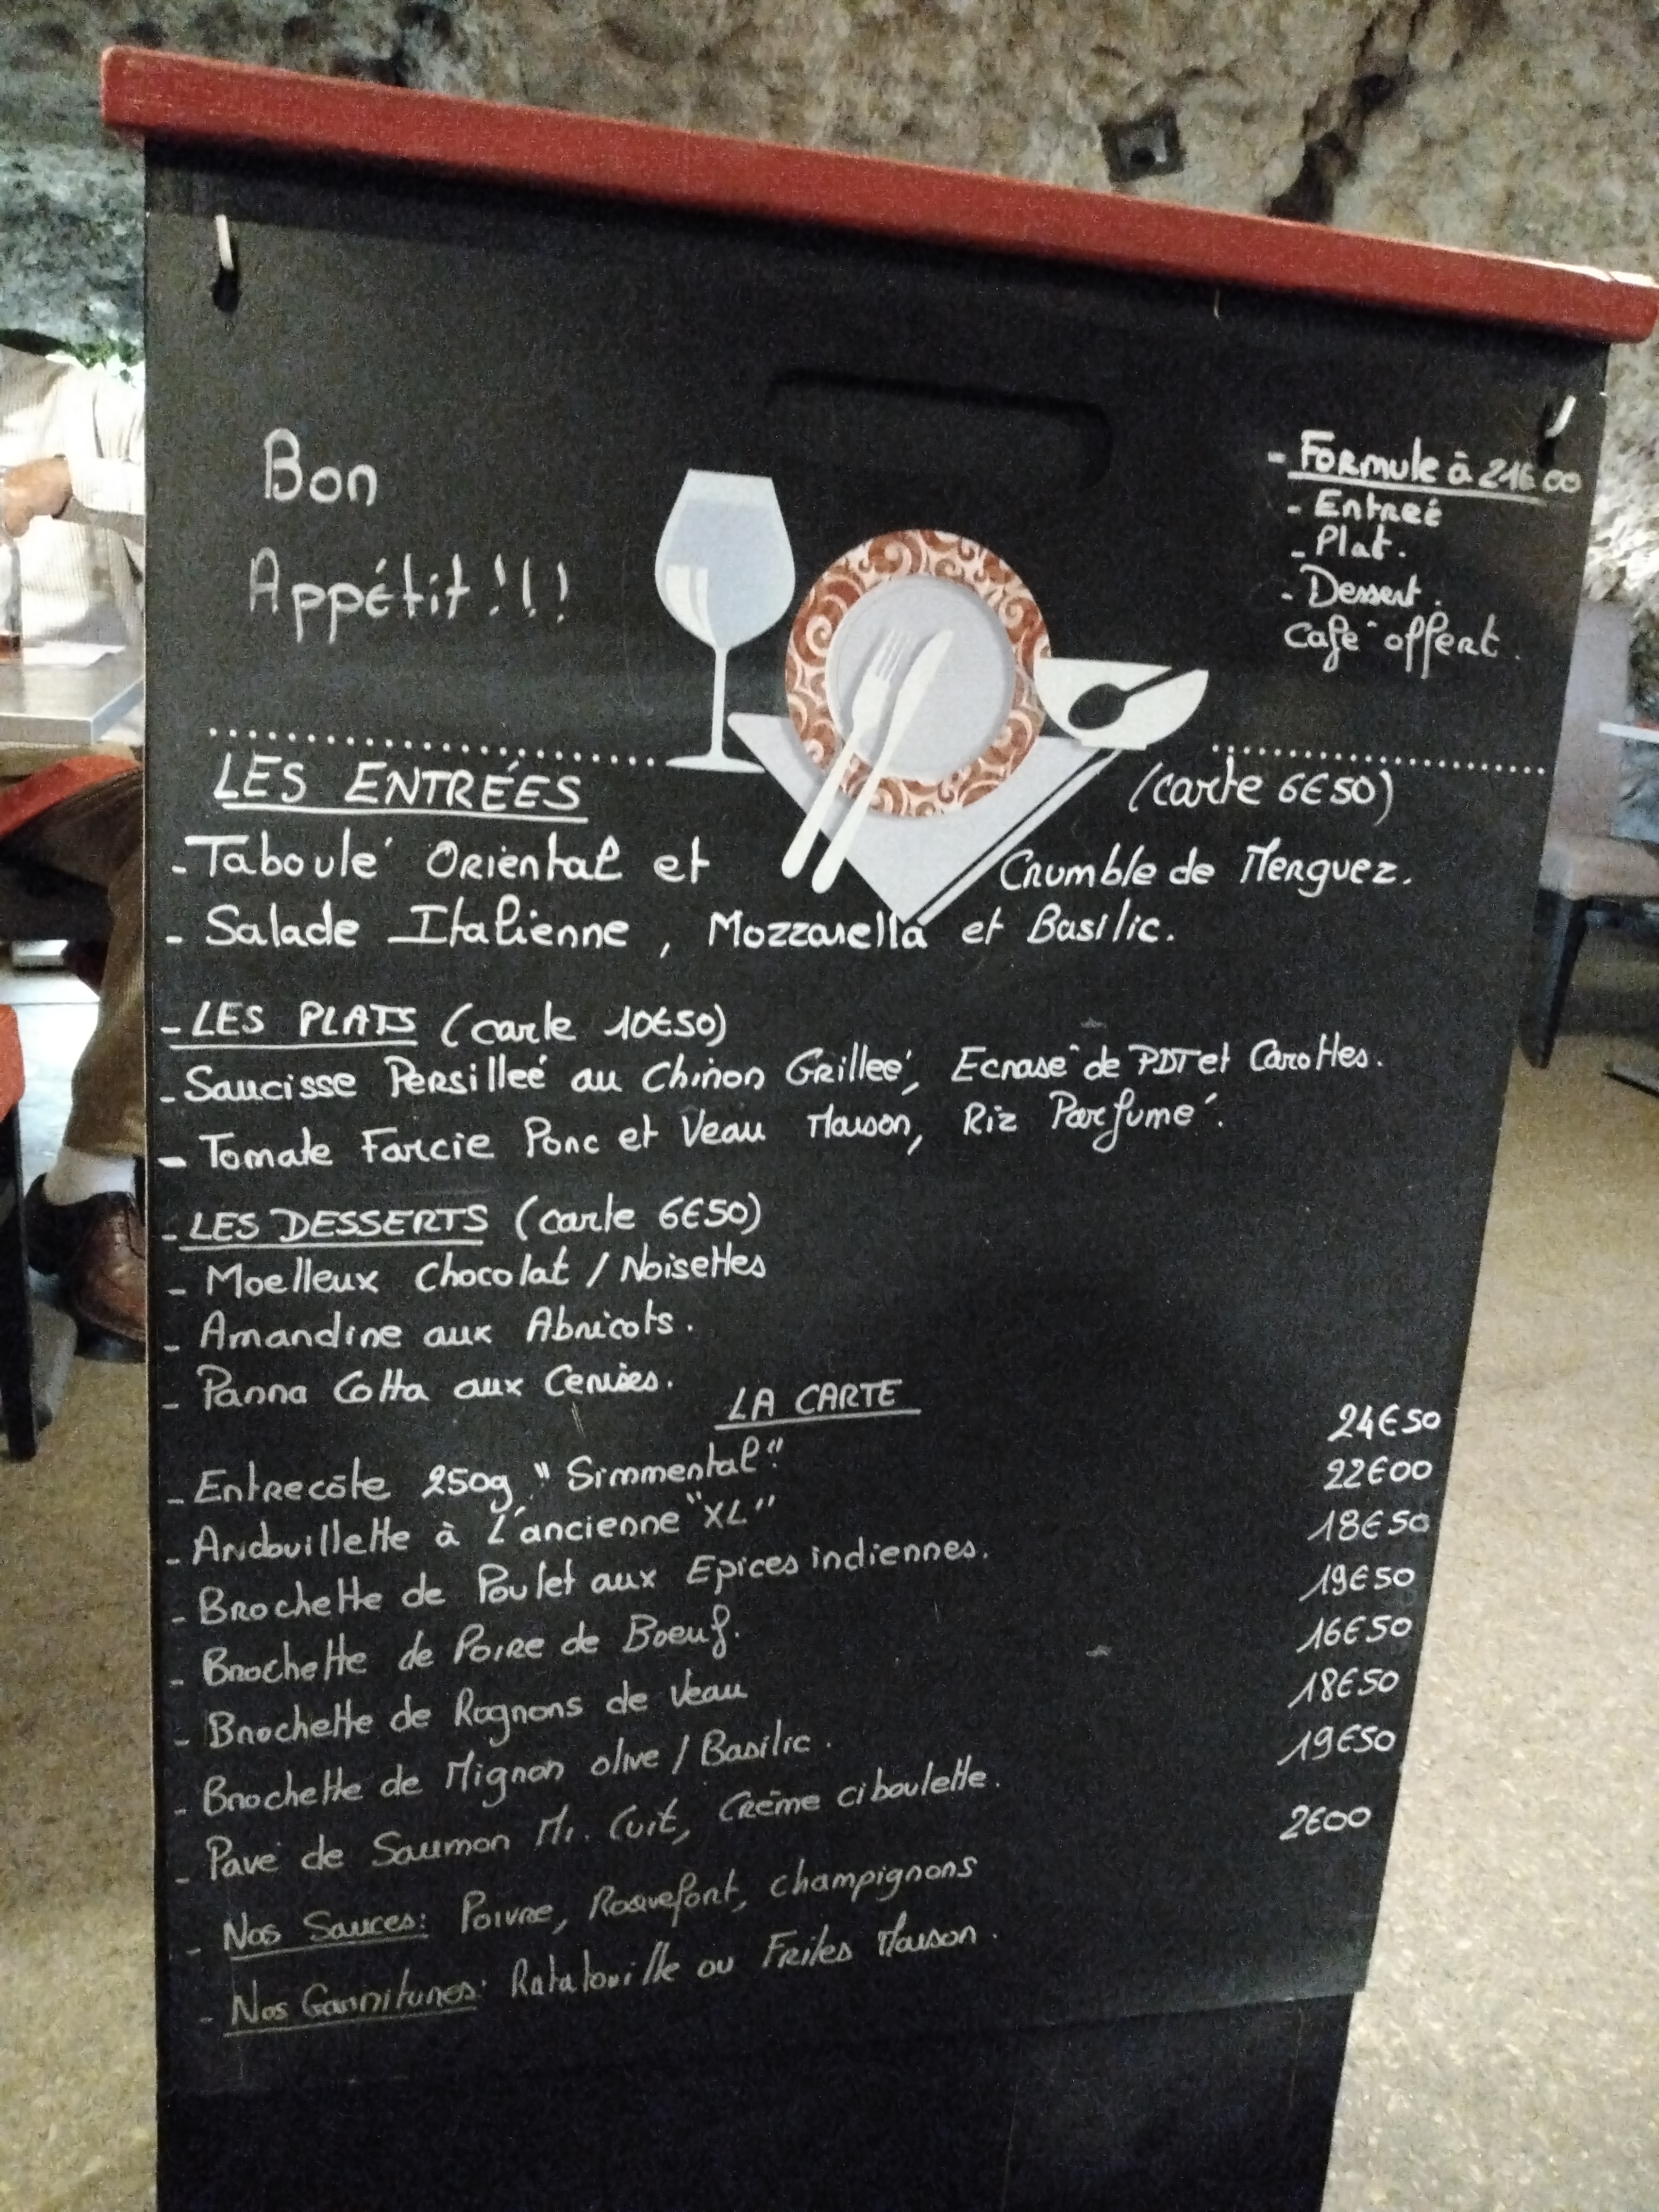 Bon
Appétit!!!
- Formule à 21€00
- Entreé
- Plat.
- Dessert.
Café offert.
LES ENTRÉES (carte 6€50)
- Taboulé Oriental et Crumble de Merguez.
- Salade Italienne, Mozzarella et Basilic.
- LES PLATS (carte 10€50)
- Saucisse Persilleé au Chinon Grilleé, Ecrasé de PDT et Carottes.
- Tomate Farcie Porc et Veau Maison, Riz Parfumé.
- LES DESSERTS (carte 6€50)
- Moelleux Chocolat / Noisettes
- Amandine aux Abricots.
- Panna Cotta aux Cerises.
LA CARTE
- Entrecôte 250g, "Simmental". 24€50
- Andouillette à L'ancienne "XL" 22€00
- Brochette de Poulet aux Epices indiennes. 18€50
- Brochette de Poire de Boeuf. 19€50
- Brochette de Rognons de Veau 16€50
- Brochette de Mignon olive / Basilic. 18€50
- Pavé de Saumon Mi. Cuit, Crème ciboulette. 19€50
- Nos Sauces: Poivre, Roquefort, champignons 2€00
- Nos Garnitures: Ratatouille ou Frites Maison.